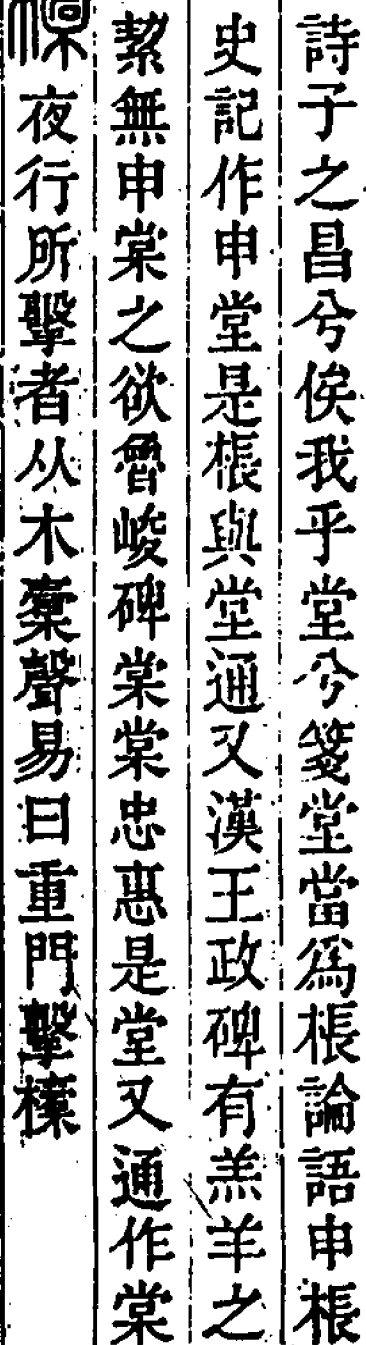 詩子之昌兮俟我乎堂兮箋堂當爲棖論語申棖
史記作申堂是棖與堂通又漢王政碑有羔羊之
絜無申棠之欲魯峻碑棠棠忠惠是堂又通作棠
夜行所擊者从木橐聲易曰重門擊㯓